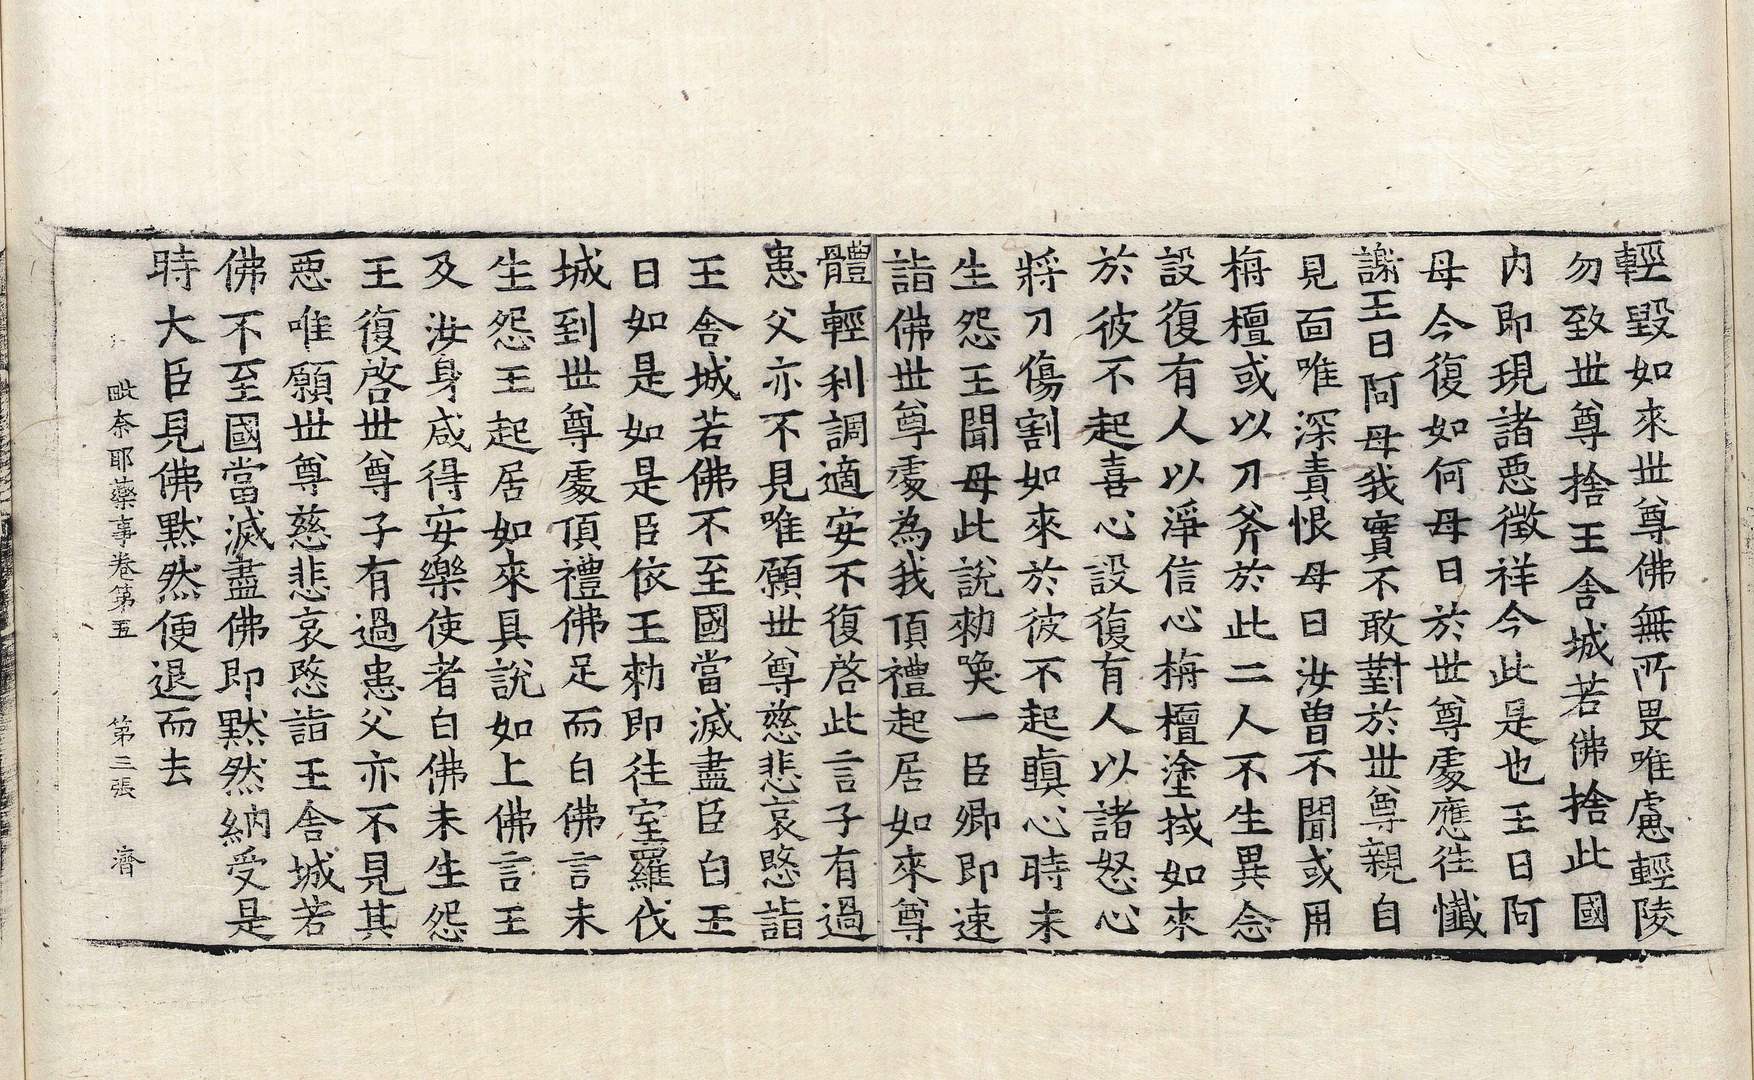 輕毀如來世尊佛無所畏唯慮輕陵
勿致世尊捨王舍城若佛捨此國
內即現諸惡徵祥今此是也王曰阿
母今復如何母曰於世尊處應往懺
謝王曰阿母我實不敢對於世尊親自
見面唯深責恨母曰汝曾不聞或用
栴檀或以刀斧於此二人不生異念
設復有人以淨信心栴檀塗拭如來
於彼不起喜心設復有人以諸怒心
將刀傷割如來於彼不起瞋心時未
生怨王聞母此說勑喚一臣卿即速
詣佛世尊處為我頂禮起居如來尊
體輕利調適安不復啓此言子有過
患父亦不見唯願世尊慈悲哀愍詣
王舍城若佛不至國當滅盡臣白王
曰如是如是臣依王勑即往室羅伐
城到世尊處頂禮佛足而白佛言未
生怨王起居如來具說如上佛言王
及汝身咸得安樂使者白佛未生怨
王復啓世尊子有過患父亦不見其
惡唯願世尊慈悲哀愍詣王舍城若
佛不至國當滅盡佛即默然納受是
時大臣見佛默然便退而去
毗奈耶藥事卷第五 第三張 濟